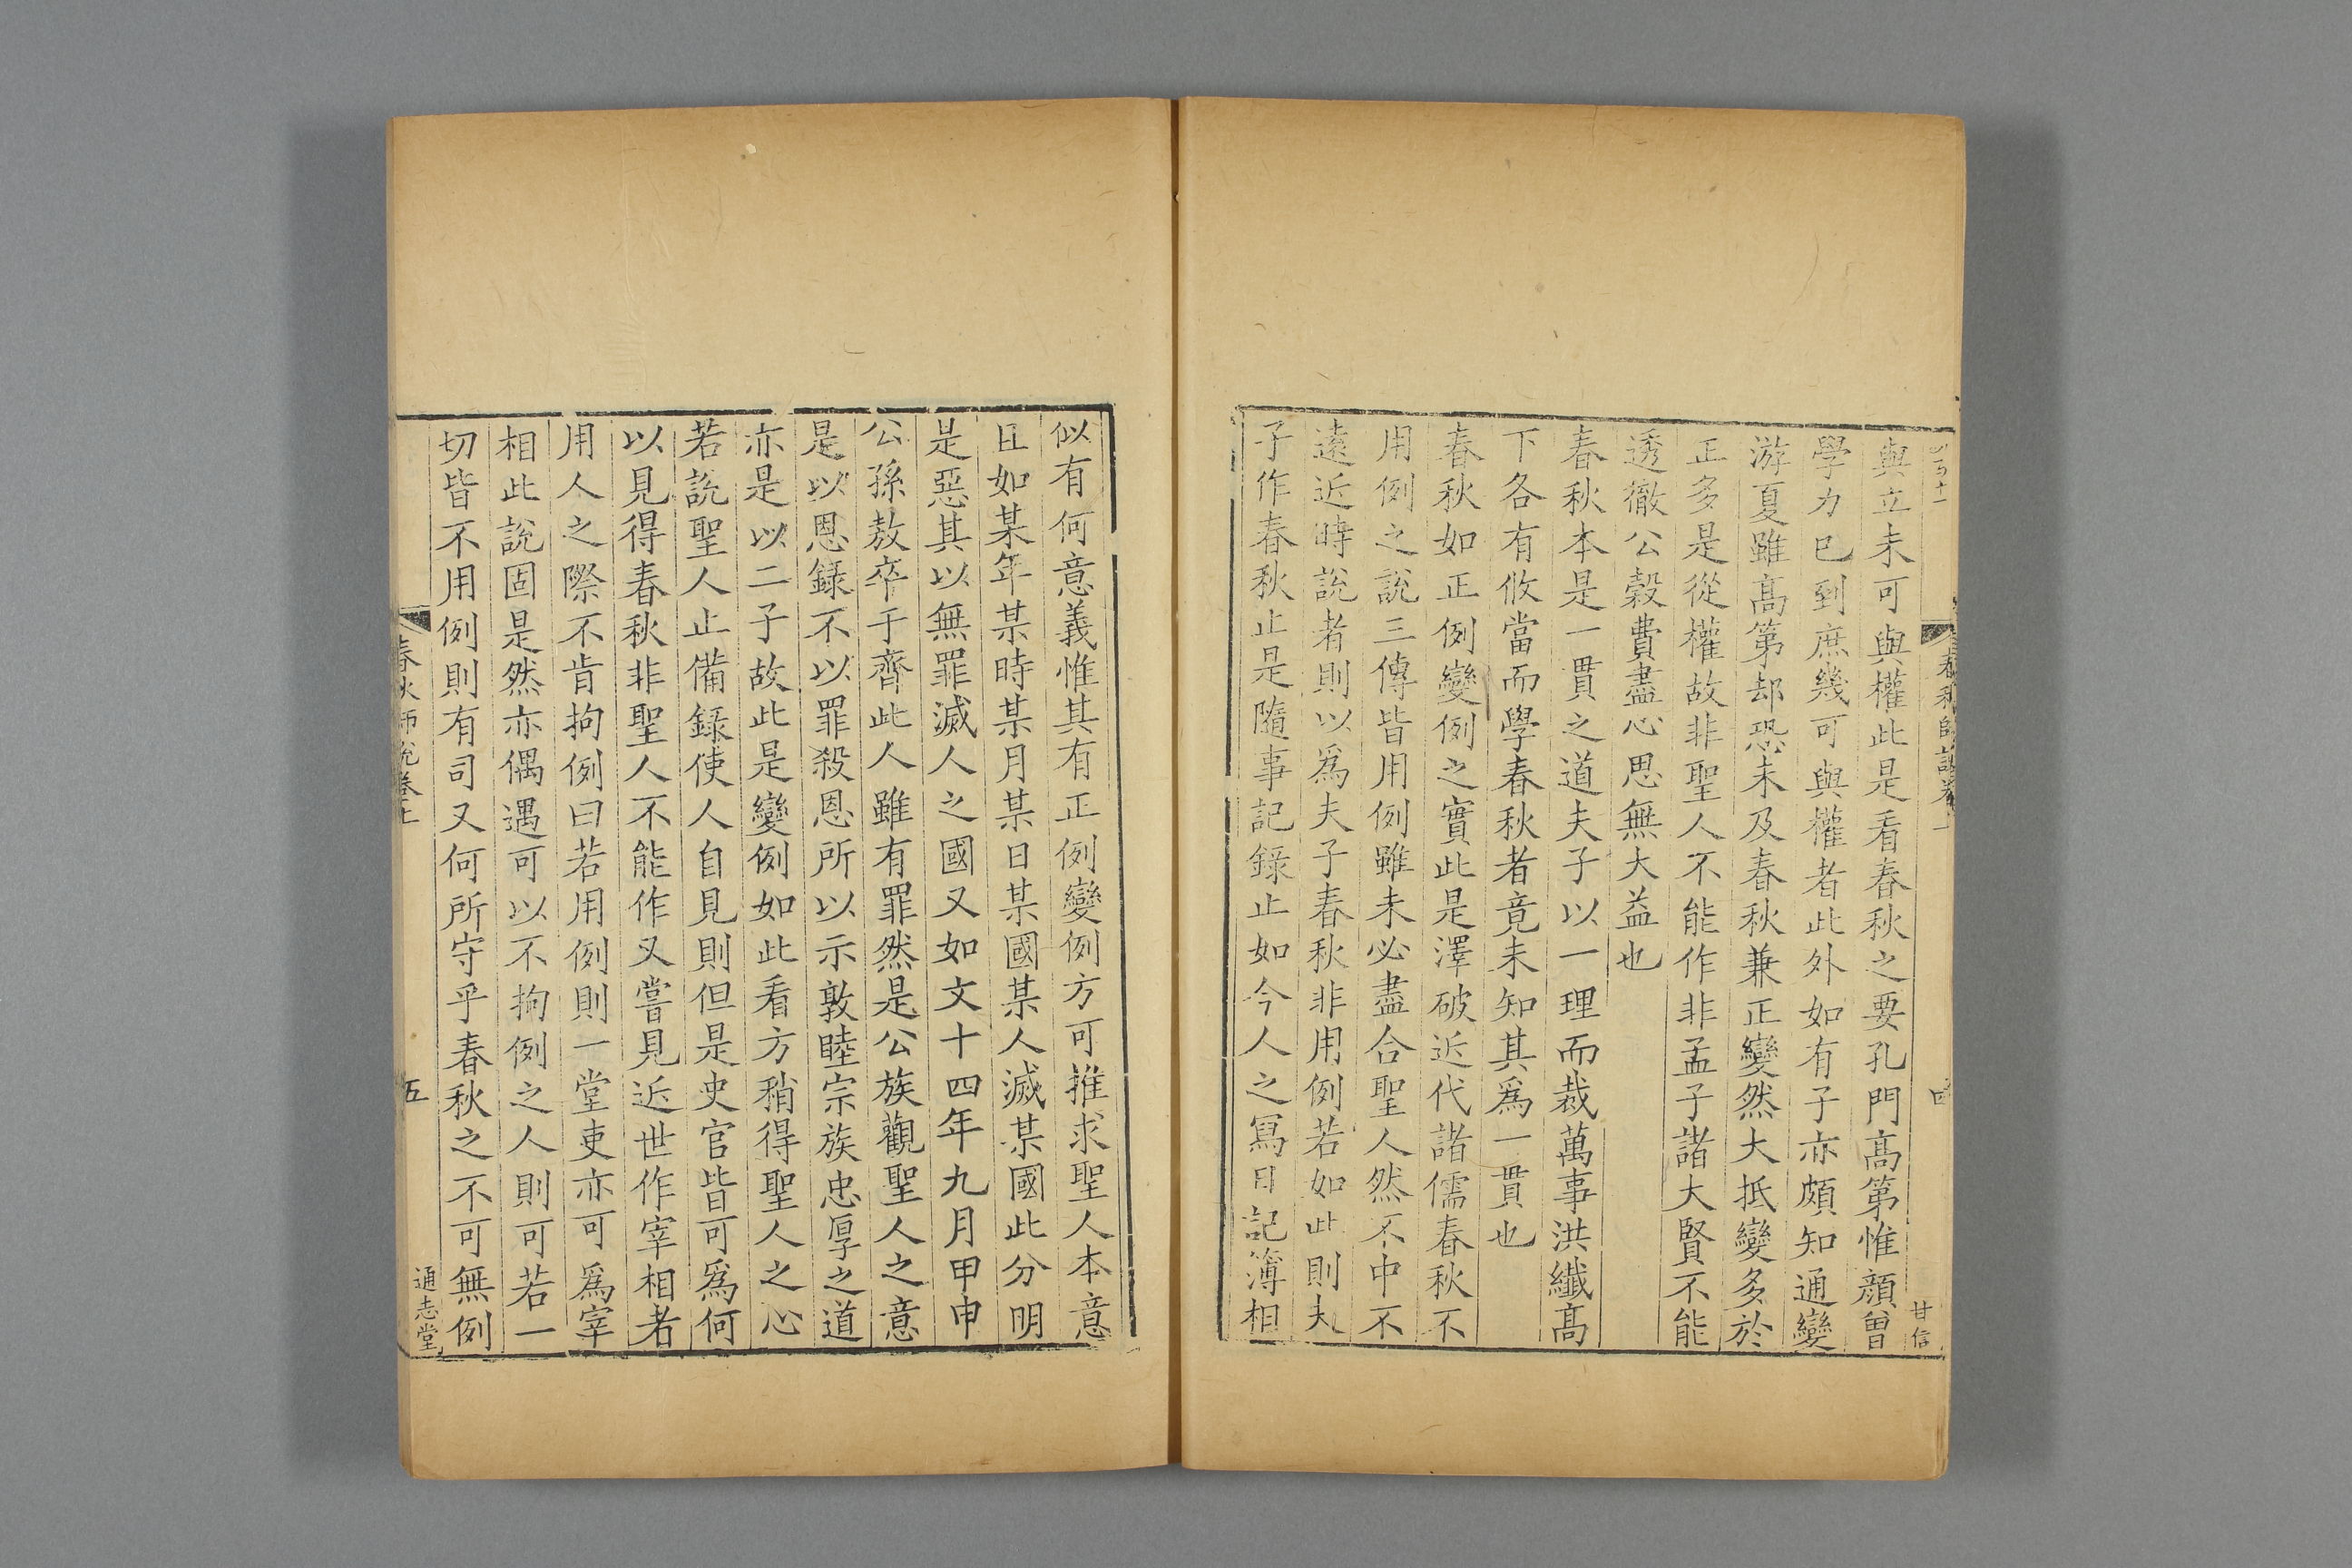 與立未可與權此是看春秋之要孔門高第惟顔曾
學力已到庶幾可與權者此外如有子亦頗知通變
游夏雖高第却恐未及春秋兼正變然大抵變多於
正多是從權故非聖人不能作非孟子諸大賢不能
透徹公穀費盡心思無大益也
春秋本是一貫之道夫子以一理而裁萬事洪纖高
下各有攸當而學春秋者竟未知其爲一貫也
春秋如正例變例之實此是澤破近代諸儒春秋不
用例之說三傳皆用例雖未必盡合聖人然不中不
遠近時說者則以爲夫子春秋非用例若如此則夫
子作春秋止是隨事記錄止如今人之寫日記簿相
甘信
似有何意義惟其有正例變例方可推求聖人本意
且如某年某時某月某日某國某人滅某國此分明
是惡其以無罪滅人之國又如文十四年九月甲申
公孫敖卒于齊此人雖有罪然是公族觀聖人之意
是以恩錄不以罪殺恩所以示敦睦宗族忠厚之道
亦是以二子故此是變例如此看方稍得聖人之心
若說聖人止備錄使人自見則但是史官皆可爲何
以見得春秋非聖人不能作又嘗見近世作宰相者
用人之際不肯拘例曰若用例則一堂吏亦可爲宰
相此說固是然亦偶遇可以不拘例之人則可若一
切皆不用例則有司又何所守乎春秋之不可無例
春秋師說卷上
五
通志堂